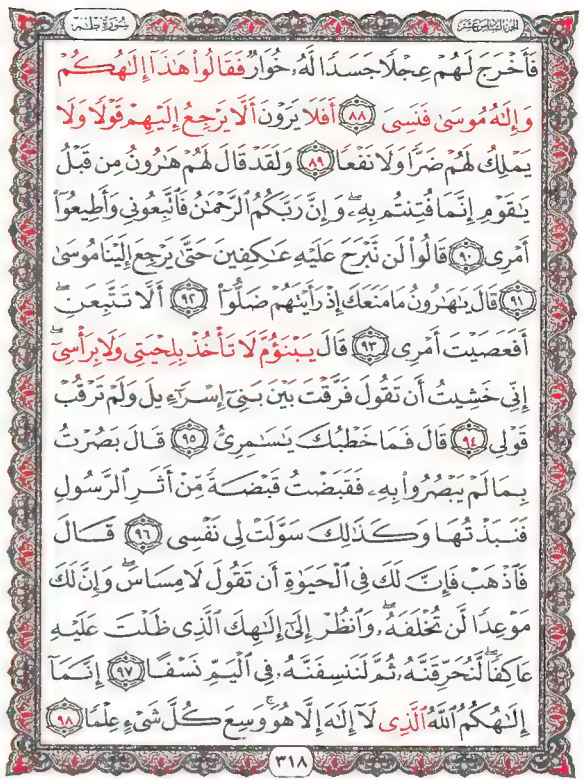 الجزء السادس عشر
سورة طه
فَأَخْرَجَ لَهُمْ عِجْلًا جَسَدًا لَّهُۥ خُوَارٌ فَقَالُوا۟ هَٰذَآ إِلَٰهُكُمْ
وَإِلَٰهُ مُوسَىٰ فَنَسِىَ ٨٨ أَفَلَا يَرَوْنَ أَلَّا يَرْجِعُ إِلَيْهِمْ قَوْلًا وَلَا
يَمْلِكُ لَهُمْ ضَرًّا وَلَا نَفْعًا ٨٩ وَلَقَدْ قَالَ لَهُمْ هَٰرُونُ مِن قَبْلُ
يَٰقَوْمِ إِنَّمَا فُتِنتُم بِهِۦۖ وَإِنَّ رَبَّكُمُ ٱلرَّحْمَٰنُ فَٱتَّبِعُونِى وَأَطِيعُوٓا۟
أَمْرِى ٩٠ قَالُوا۟ لَن نَّبْرَحَ عَلَيْهِ عَٰكِفِينَ حَتَّىٰ يَرْجِعَ إِلَيْنَا مُوسَىٰ
٩١ قَالَ يَٰهَٰرُونُ مَا مَنَعَكَ إِذْ رَأَيْتَهُمْ ضَلُّوٓا۟ ٩٢ أَلَّا تَتَّبِعَنِۖ
أَفَعَصَيْتَ أَمْرِى ٩٣ قَالَ يَبْنَؤُمَّ لَا تَأْخُذْ بِلِحْيَتِى وَلَا بِرَأْسِىٓۖ
إِنِّى خَشِيتُ أَن تَقُولَ فَرَّقْتَ بَيْنَ بَنِىٓ إِسْرَٰٓءِيلَ وَلَمْ تَرْقُبْ
قَوْلِى ٩٤ قَالَ فَمَا خَطْبُكَ يَٰسَٰمِرِىُّ ٩٥ قَالَ بَصُرْتُ
بِمَا لَمْ يَبْصُرُوا۟ بِهِۦ فَقَبَضْتُ قَبْضَةً مِّنْ أَثَرِ ٱلرَّسُولِ
فَنَبَذْتُهَا وَكَذَٰلِكَ سَوَّلَتْ لِى نَفْسِى ٩٦ قَالَ
فَٱذْهَبْ فَإِنَّ لَكَ فِى ٱلْحَيَوٰةِ أَن تَقُولَ لَا مِسَاسَۖ وَإِنَّ لَكَ
مَوْعِدًا لَّن تُخْلَفَهُۥۖ وَٱنظُرْ إِلَىٰٓ إِلَٰهِكَ ٱلَّذِى ظَلْتَ عَلَيْهِ
عَاكِفًاۖ لَّنُحَرِّقَنَّهُۥ ثُمَّ لَنَنسِفَنَّهُۥ فِى ٱلْيَمِّ نَسْفًا ٩٧ إِنَّمَآ
إِلَٰهُكُمُ ٱللَّهُ ٱلَّذِى لَآ إِلَٰهَ إِلَّا هُوَۚ وَسِعَ كُلَّ شَىْءٍ عِلْمًا ٩٨
٣١٨